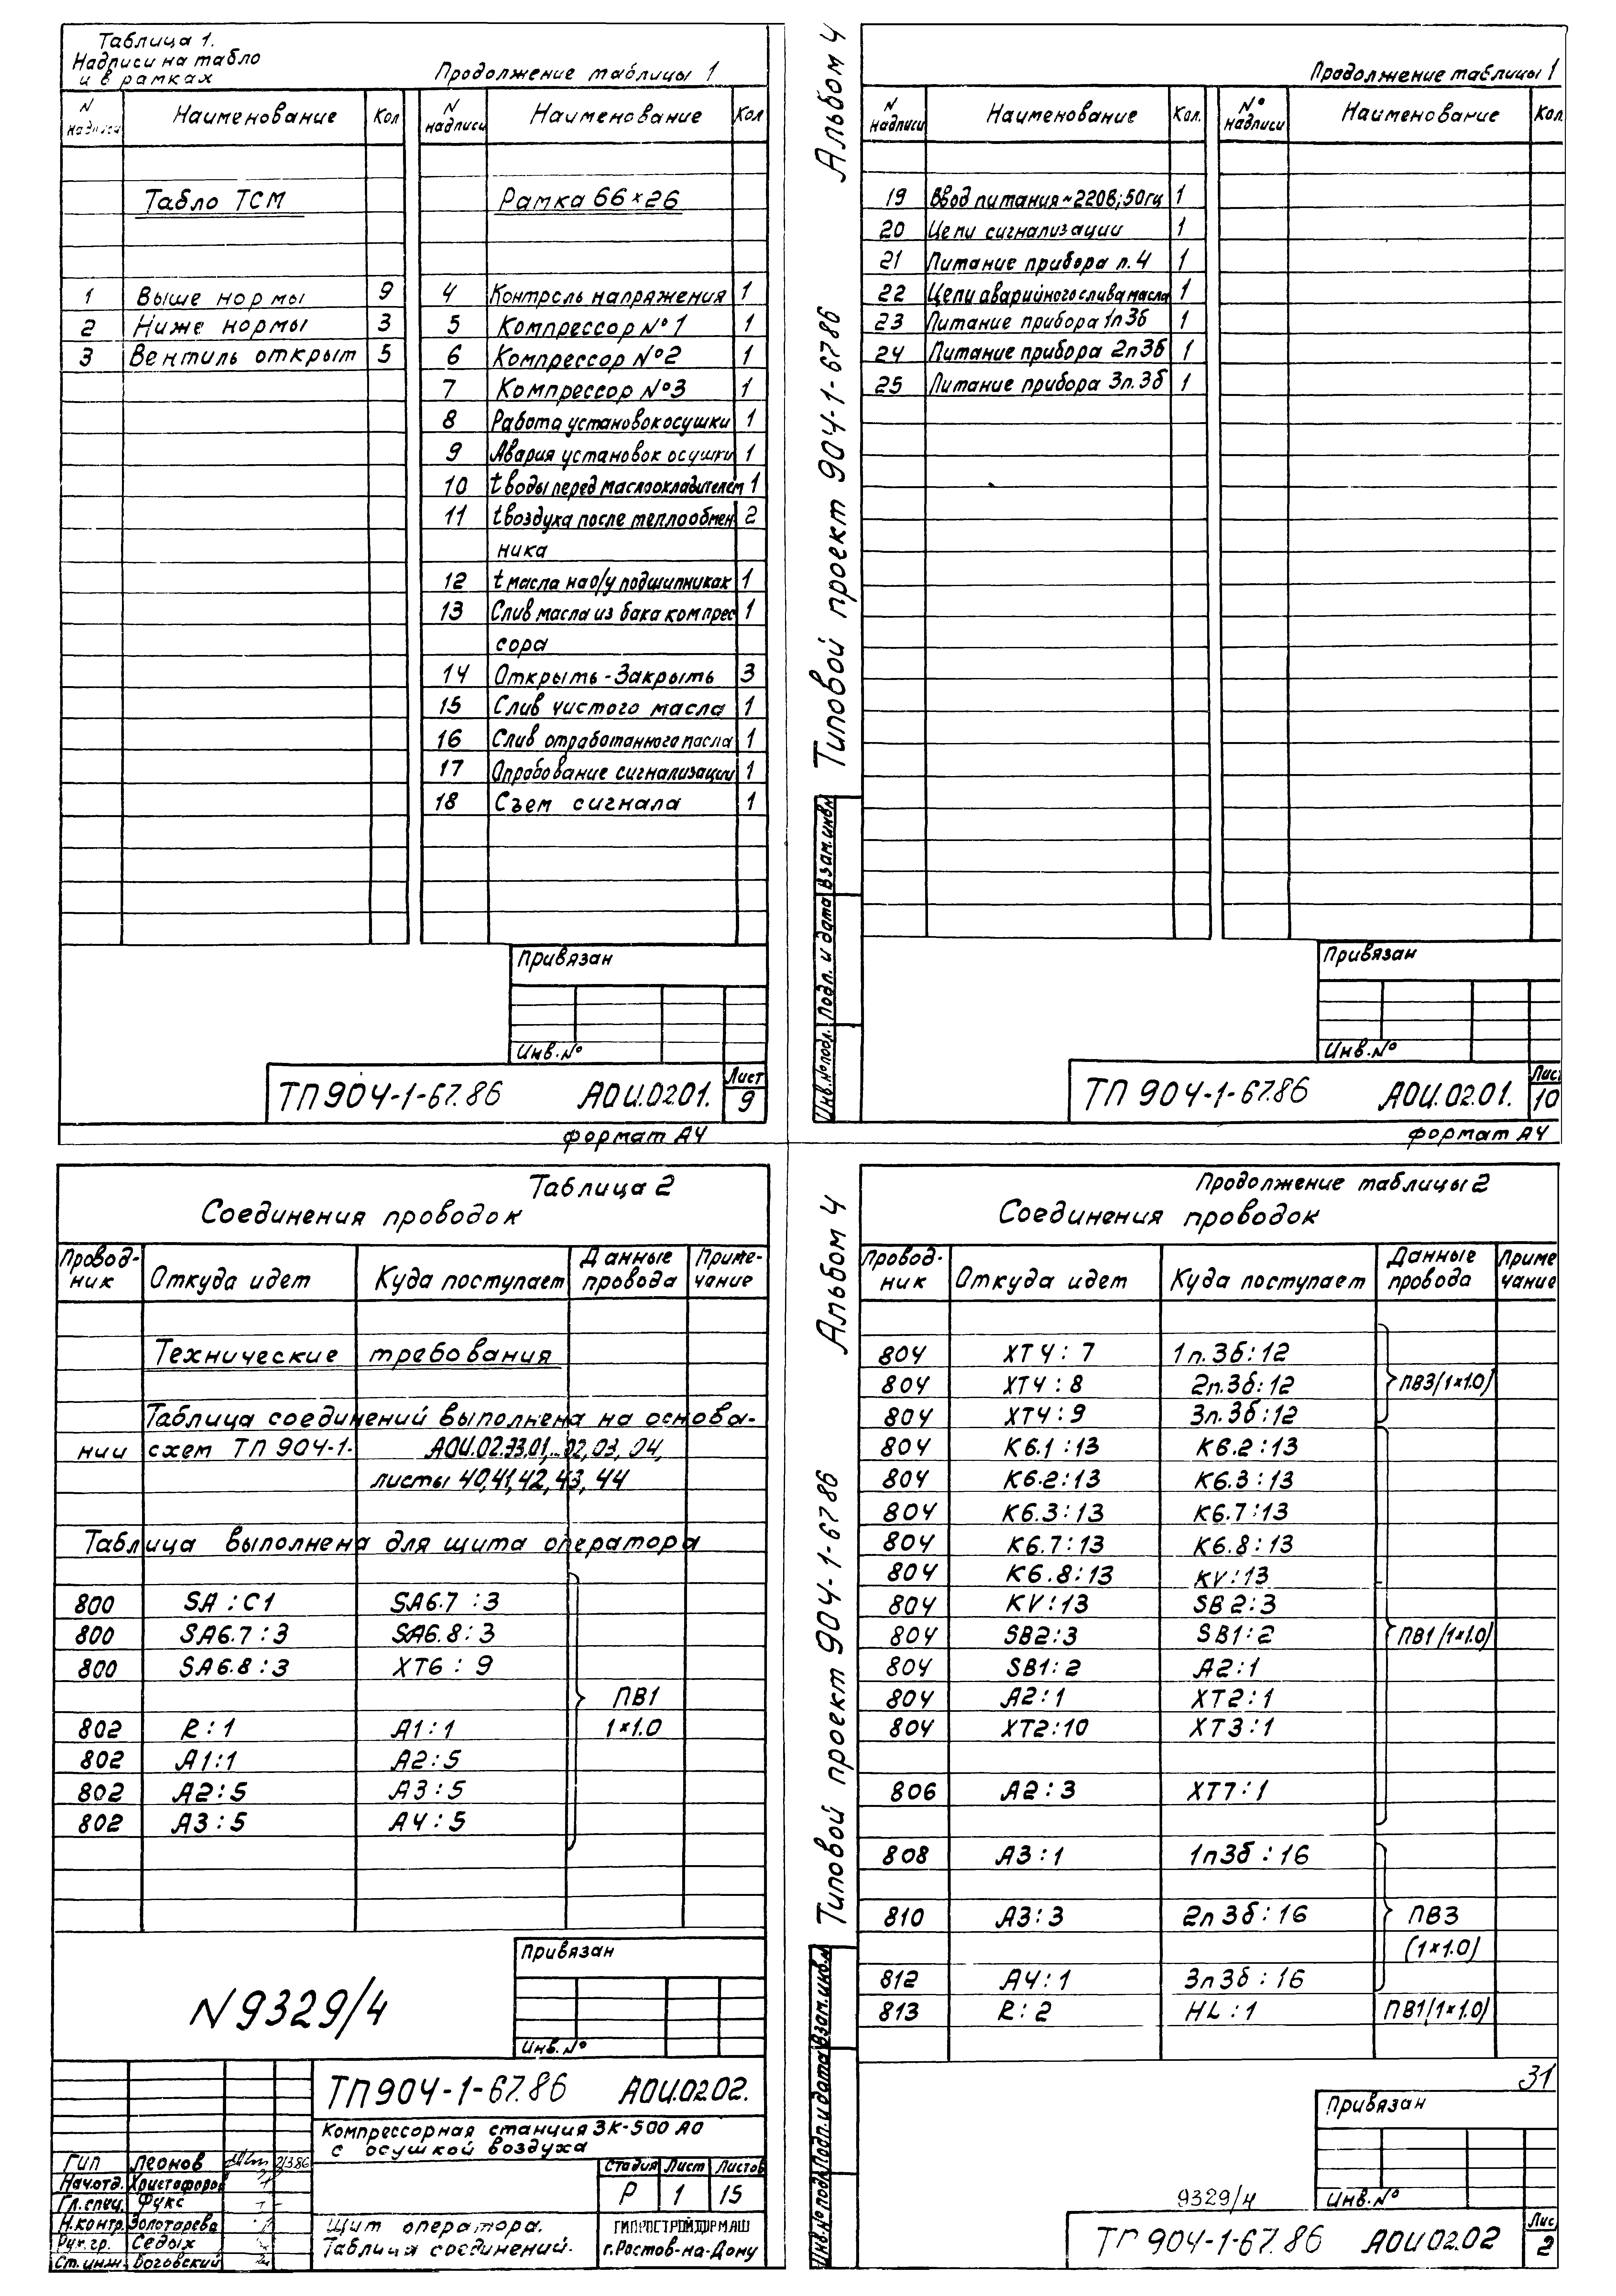 Таблица 1.
Надписи на табло
и в рамках
Продолжение таблицы 1
N надписи Наименование Кол N надписи Наименование Кол
Табло ТСМ Рамка 66×26
1 Выше нормы 9 4 Контроль напряжения 1
2 Ниже нормы 3 5 Компрессор №1 1
3 Вентиль открыт 5 6 Компрессор №2 1
7 Компрессор №3 1
8 Работа установок осушки 1
9 Авария установок осушки 1
10 t воды перед маслоохладителем 1
11 t воздуха после теплообмен 2
ника
12 t масла на о/у подшипниках 1
13 Слив масла из бака компрес 1
сора
14 Открыть-Закрыть 3
15 Слив чистого масла 1
16 Слив отработанного масла 1
17 Опробование сигнализации 1
18 Съем сигнала 1
Привязан
Инв.№
ТП 904-1-67.86 АОИ.02.01. Лист 9
формат А4
Альбом 4
Типовой проект 904-1-67.86
Инв.№ подл. Подп. и дата Взам.инв.№
Продолжение таблицы 1
N надписи Наименование Кол. № надписи Наименование Кол.
19 Ввод питания ~220В; 50гц 1
20 Цепи сигнализации 1
21 Питание прибора п.4 1
22 Цепи аварийного слива масла 1
23 Питание прибора 1п3б 1
24 Питание прибора 2п3б 1
25 Питание прибора 3п.3б 1
Привязан
Инв.№
ТП 904-1-67.86 АОИ.02.01. Лис. 10
формат А4
Таблица 2
Соединения проводок
Провод-ник Откуда идет Куда поступает Данные провода Приме-чание
Технические требования
Таблица соединений выполнена на основа-
нии схем ТП 904-1- АОИ.02.ЭЗ.01,...02,03,04,
листы 40,41,42,43,44
Таблица выполнена для щита оператора
800 SA : C1 SA6.7 : 3
800 SA6.7 : 3 SA6.8 : 3
800 SA6.8 : 3 XT6 : 9
ПВ1
802 R : 1 A1 : 1 1×1.0
802 A1:1 A2:5
802 A2:5 A3:5
802 A3:5 A4:5
Привязан
Инв.№
N 9329/4
ТП 904-1-67.86 АОИ.02.02.
Компрессорная станция 3К-500 АО
с осушкой воздуха
Стадия Лист Листов
Р 1 15
Щит оператора.
Таблица соединений.
ГИПРОСТРОЙДОРМАШ
г.Ростов-на-Дону
ГИП Леонов
Нач.отд. Христофоров
Гл.спец. Фукс
Н.контр. Золотарева
Рук.гр. Седых
Ст.инж. Боговский
Альбом 4
Типовой проект 904-1-67.86
Инв.№ подл. Подп. и дата Взам.инв.№
Продолжение таблицы 2
Соединения проводок
Провод-ник Откуда идет Куда поступает Данные провода Приме чание
804 XT4 : 7 1п.3б:12
804 XT4 : 8 2п.3б:12 ПВ3(1×1.0)
804 XT4 : 9 3п.3б:12
804 К6.1 :13 К6.2 :13
804 К6.2:13 К6.3 :13
804 К6.3:13 К6.7:13
804 К6.7:13 К6.8:13
804 К6.8:13 KV:13
804 KV:13 SB2:3
804 SB2:3 SB1:2 ПВ1(1×1.0)
804 SB1:2 A2:1
804 A2:1 XT2:1
804 XT2:10 XT3:1
806 A2:3 XT7:1
808 A3:1 1п3б : 16
810 A3:3 2п3б : 16 ПВ3
(1×1.0)
812 A4:1 3п3б : 16
813 R : 2 HL : 1 ПВ1(1×1.0)
31
Привязан
Инв.№
9329/4
ТП 904-1-67.86 АОИ.02.02 Лис. 2